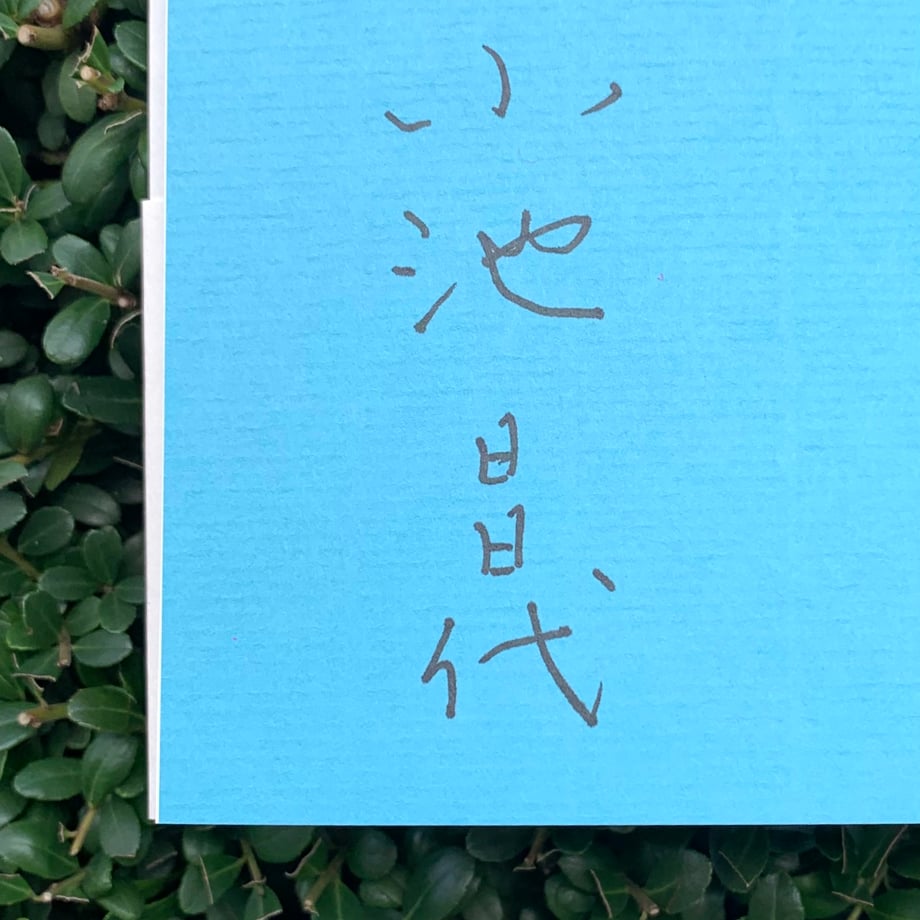 小池昌代